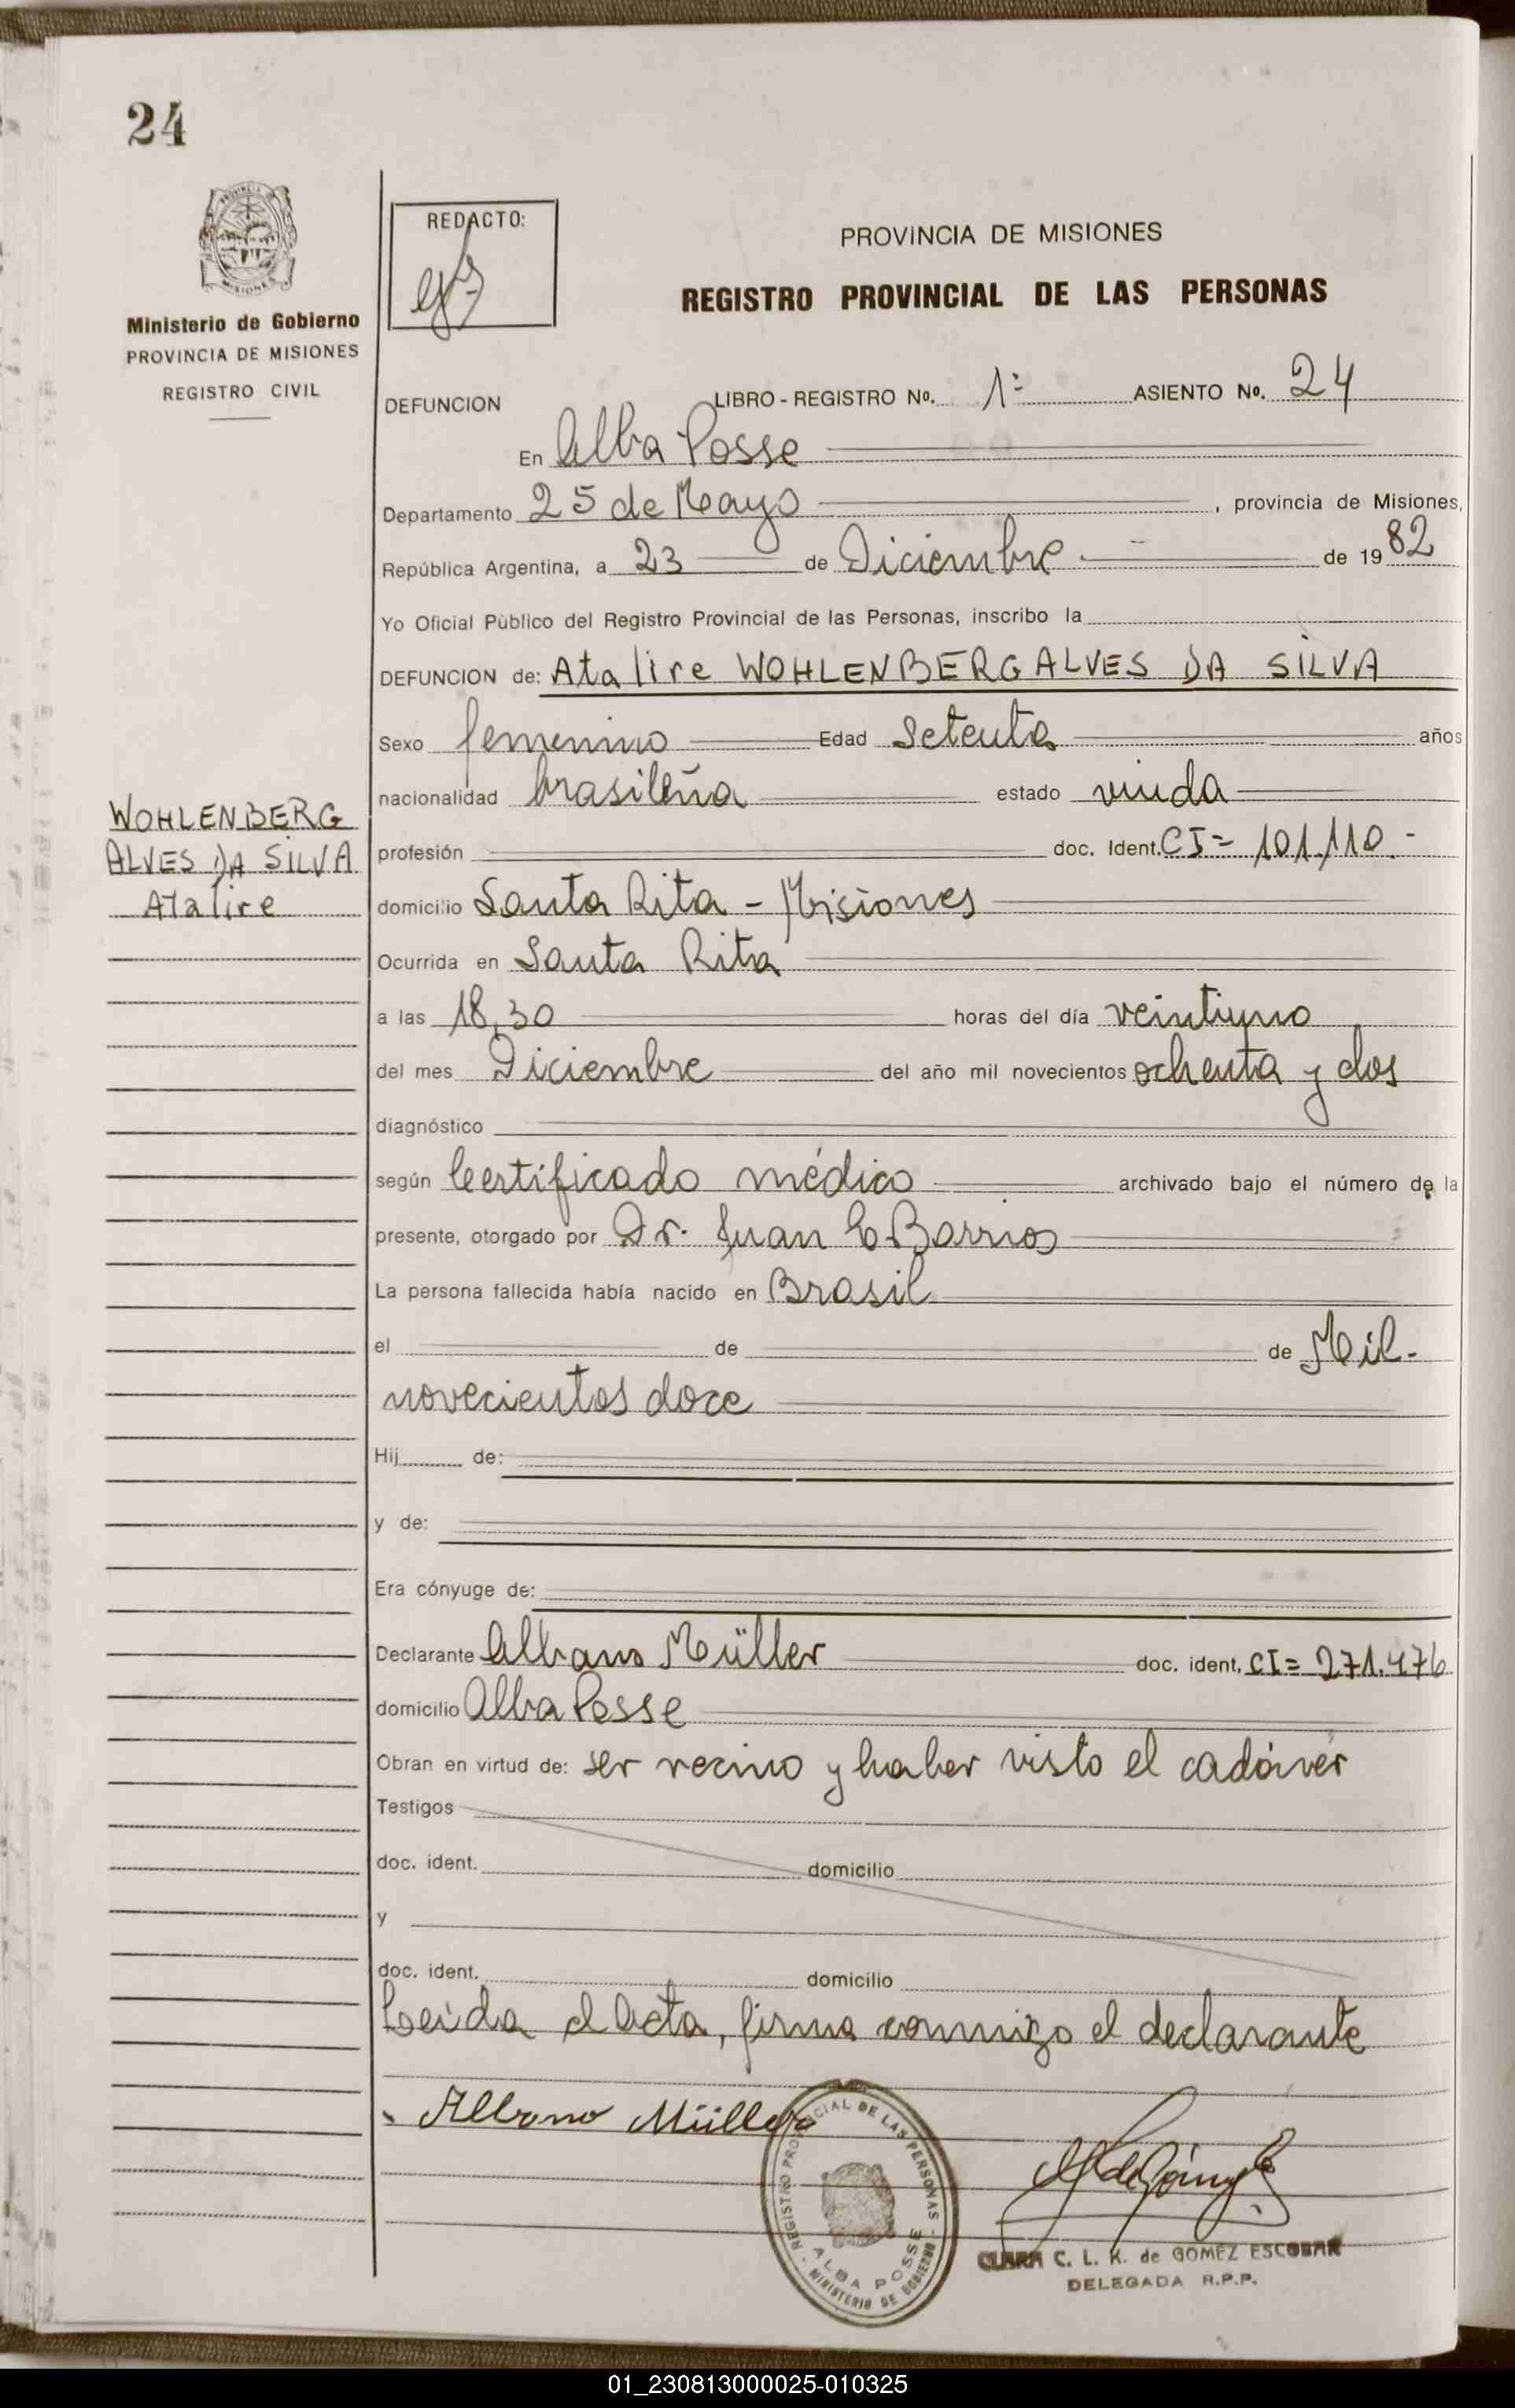 24
MISIONES
Ministerio de Gobierno
PROVINCIA DE MISIONES
REGISTRO CIVIL
REDACTO:
PROVINCIA DE MISIONES
REGISTRO PROVINCIAL DE LAS PERSONAS
DEFUNCION LIBRO - REGISTRO Nº. 1º ASIENTO Nº. 24
En Alba Posse
Departamento 25 de Mayo, provincia de Misiones,
República Argentina, a 23 de Diciembre de 1982
Yo Oficial Público del Registro Provincial de las Personas, inscribo la
DEFUNCION de: Atalire WOHLENBERG ALVES DA SILVA
Sexo femenino Edad Setenta años
nacionalidad brasileña estado viuda
WOHLENBERG
ALVES DA SILVA
Atalire
profesión doc. Ident. CI= 101.110.-
domicilio Santa Rita - Misiones
Ocurrida en Santa Rita
a las 18,30 horas del día veintiuno
del mes Diciembre del año mil novecientos ochenta y dos
diagnóstico
según Certificado médico archivado bajo el número de la
presente, otorgado por Dr. Juan C. Barrios
La persona fallecida había nacido en Brasil
el de de Mil-
novecientos doce
Hij de:
y de:
Era cónyuge de:
Declarante Albano Müller doc. ident, CI= 271.476
domicilio Alba Posse
Obran en virtud de: ser vecino y haber visto el cadáver
Testigos
doc. ident. domicilio
y
doc. ident. domicilio
Leida el Acta, firma conmigo el declarante
Albano Müller
REGISTRO PROVINCIAL DE LAS PERSONAS - MINISTERIO DE GOBIERNO -
ALBA POSSE
CLARA C. L. K. de GOMEZ ESCOBAR
DELEGADA R.P.P.
01_230813000025-010325